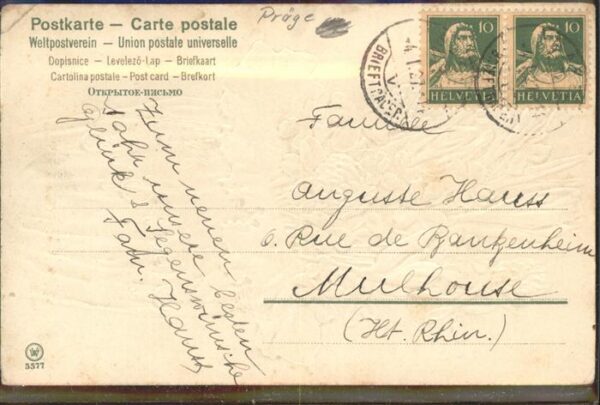 Postkarte — Carte postale
Weltpostverein — Union postale universelle
Dopisnice — Levelező-Lap — Briefkaart
Cartolina postale - Post card - Brefkort
Открытое-письмо
Präge
10
HELVETIA
10
HELVETIA
BRIEFTRÄGER
Zum neuen
Jahr unsere besten
Glück & Segenswünsche
Fam. Hauss
Familie
Auguste Hauss
6. Rue de Bankenheim
Mulhouse
(Ht. Rhin.)
5577